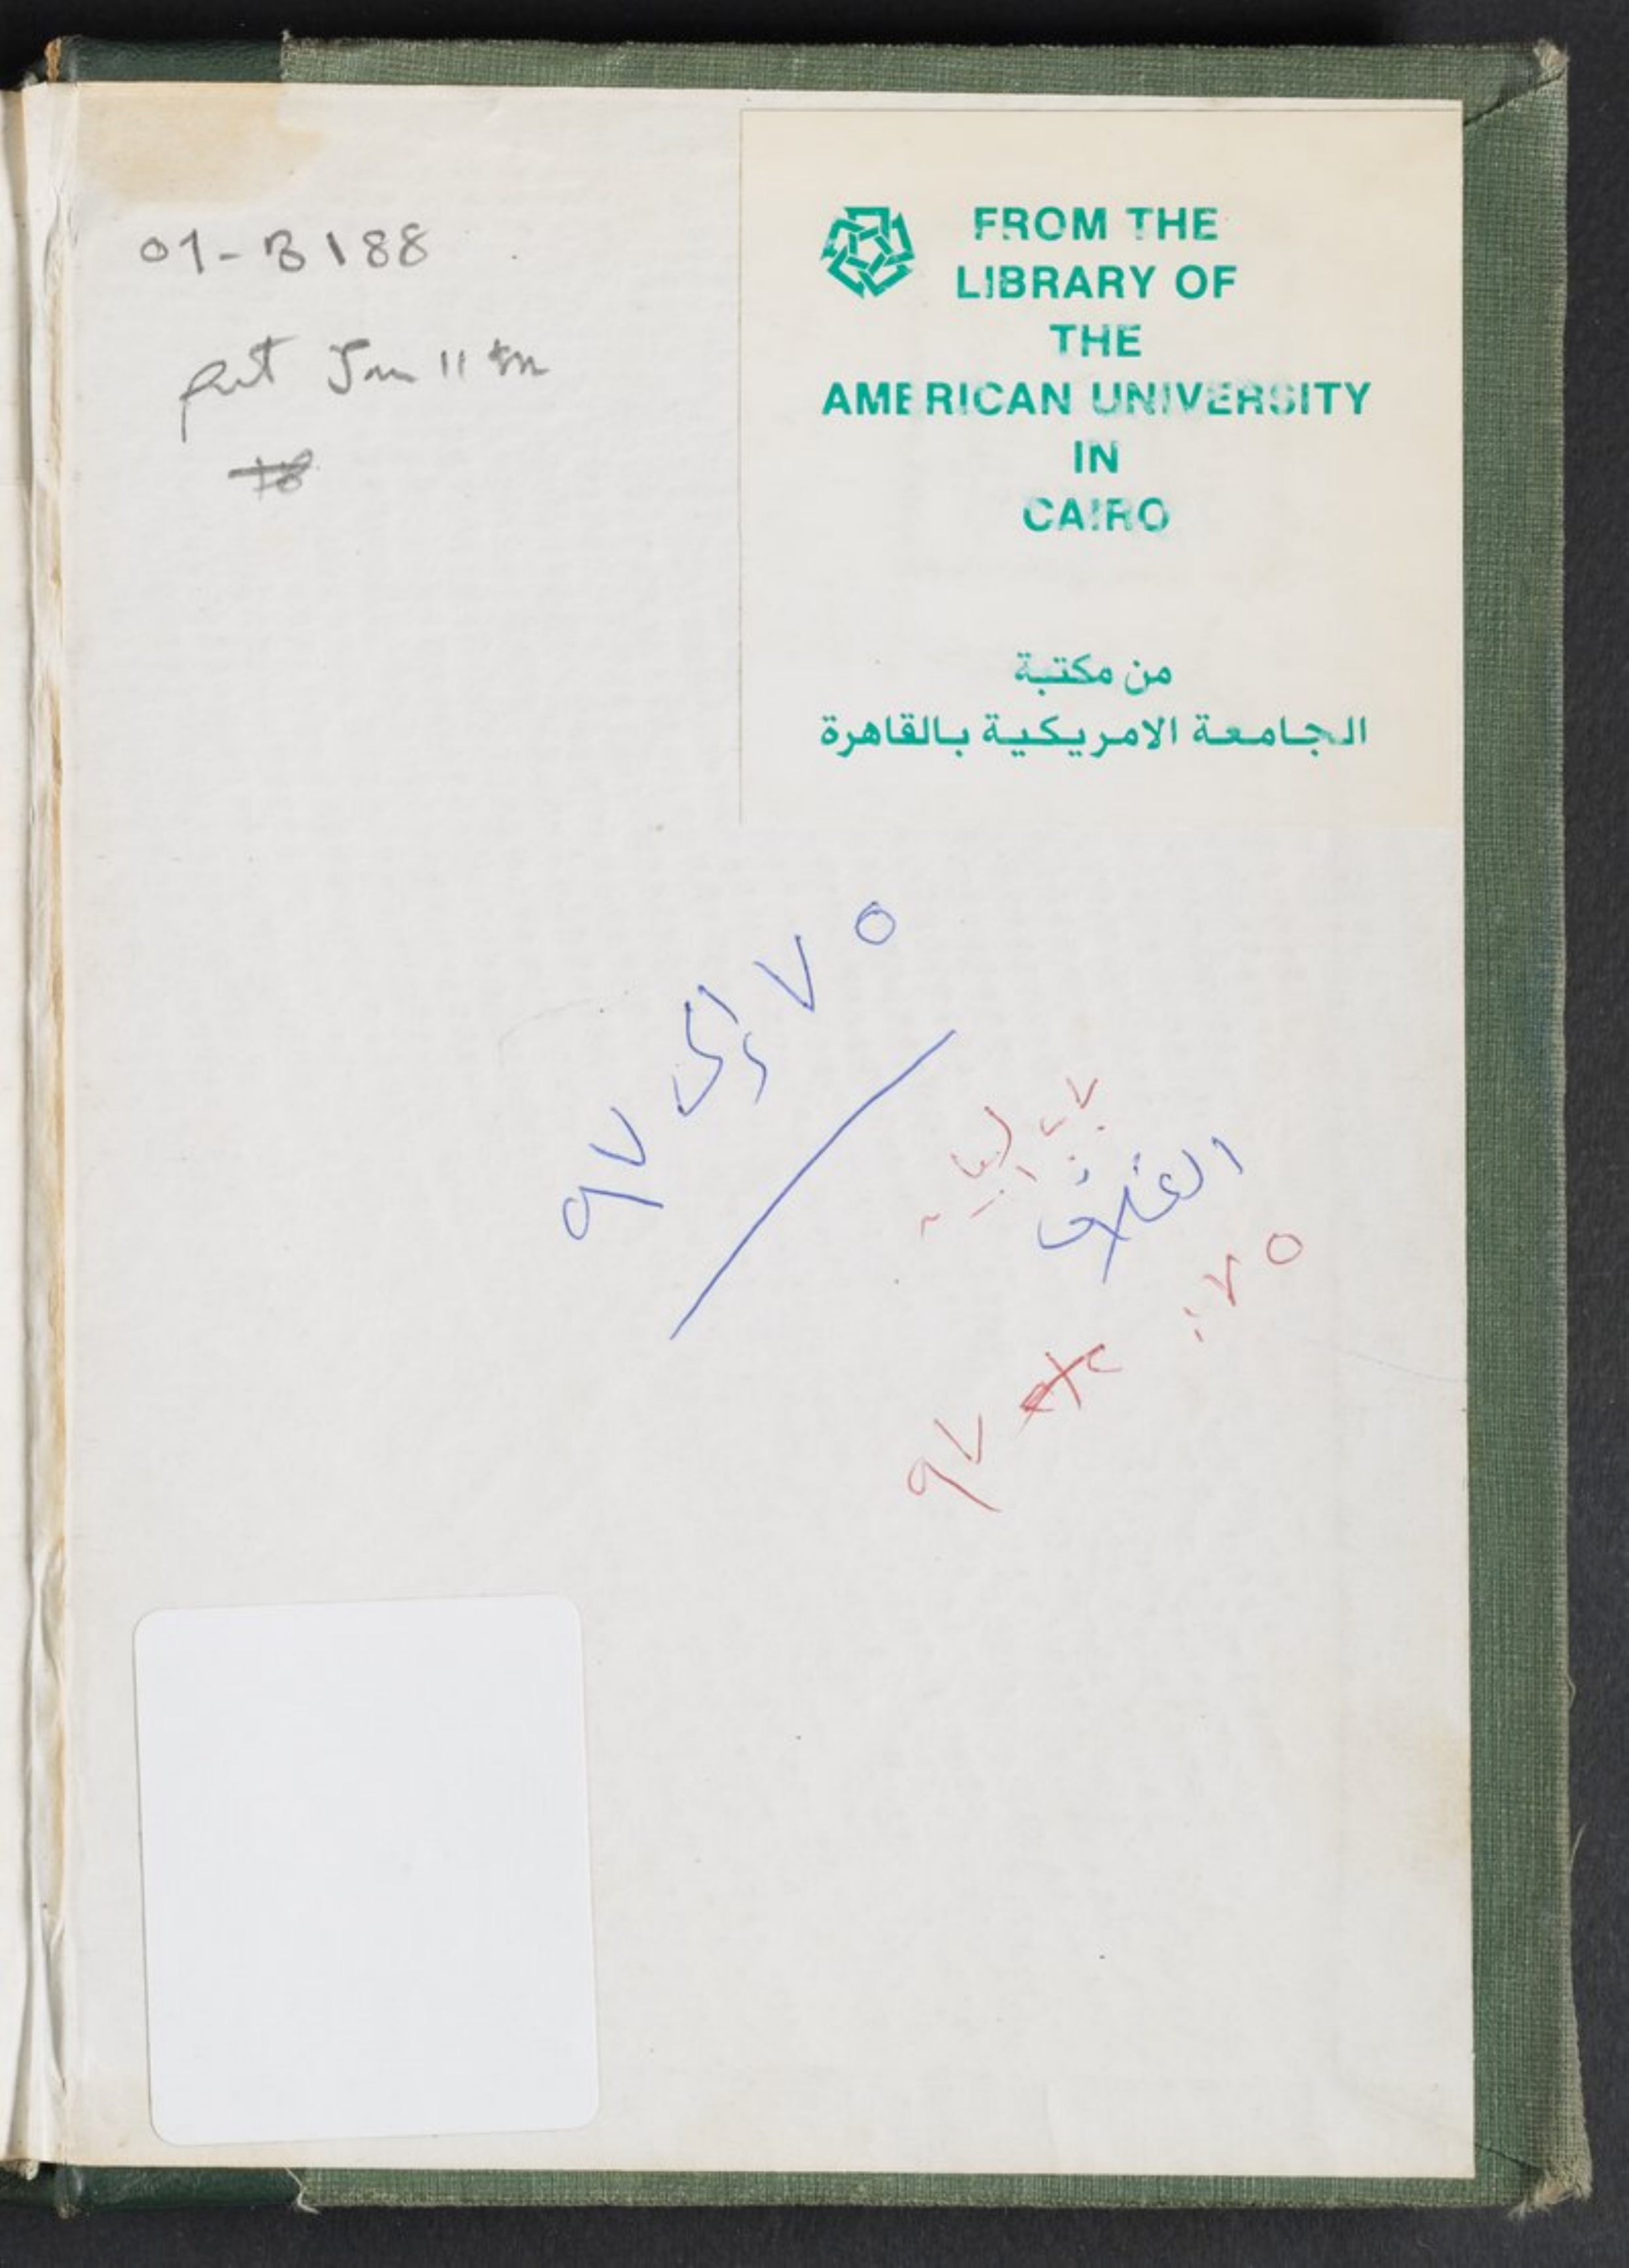 01-B188
FROM THE
LIBRARY OF
THE
AMERICAN UNIVERSITY
IN
CAIRO
من مكتبة
الجامعة الامريكية بالقاهرة
٧٥ إلى ٩٧
الغلاف
٧٥
٩٧